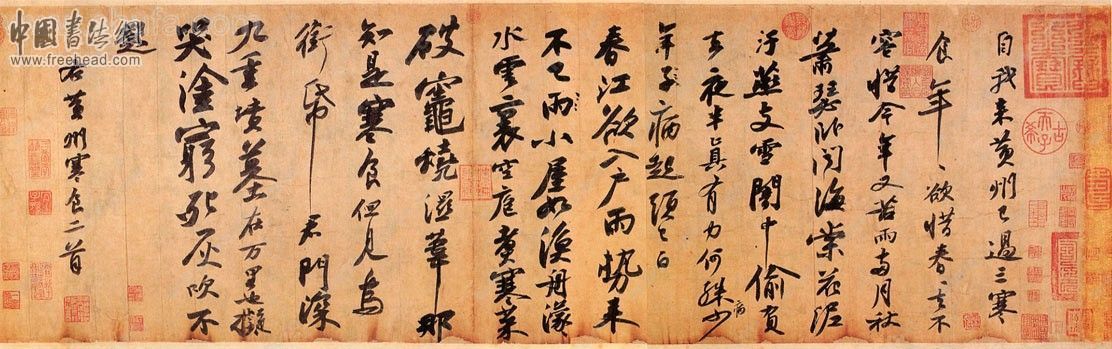 中國書法網
www.freehead.com
自我来黄州已過三寒
食年〻欲惜春〻去不
容惜今年又苦雨兩月秋
蕭瑟卧聞海棠花泥
汙燕支雪闇中偷負
去夜半真有力何殊少
病
年子病起頭已白
春江欲入戶雨勢来
不已雨小屋如漁舟濛〻
水雲裏空庖煮寒菜
破竈燒濕葦那
知是寒食但見烏
銜帋君門深
九重墳墓在万里也擬
哭塗窮死灰吹不
起
右黄州寒食二首
古希天子